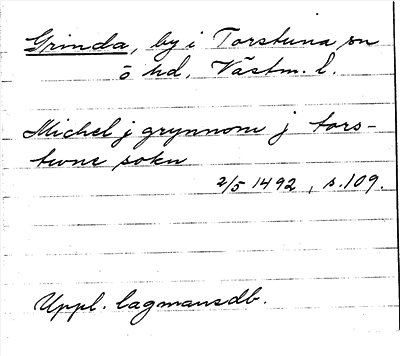 Grinda, by i Torstuna sn
ö hd, Västm. l.
Michel j grynnom j tors-
twne sokn
2/5 1492, s. 109.
Uppl. lagmansdb.